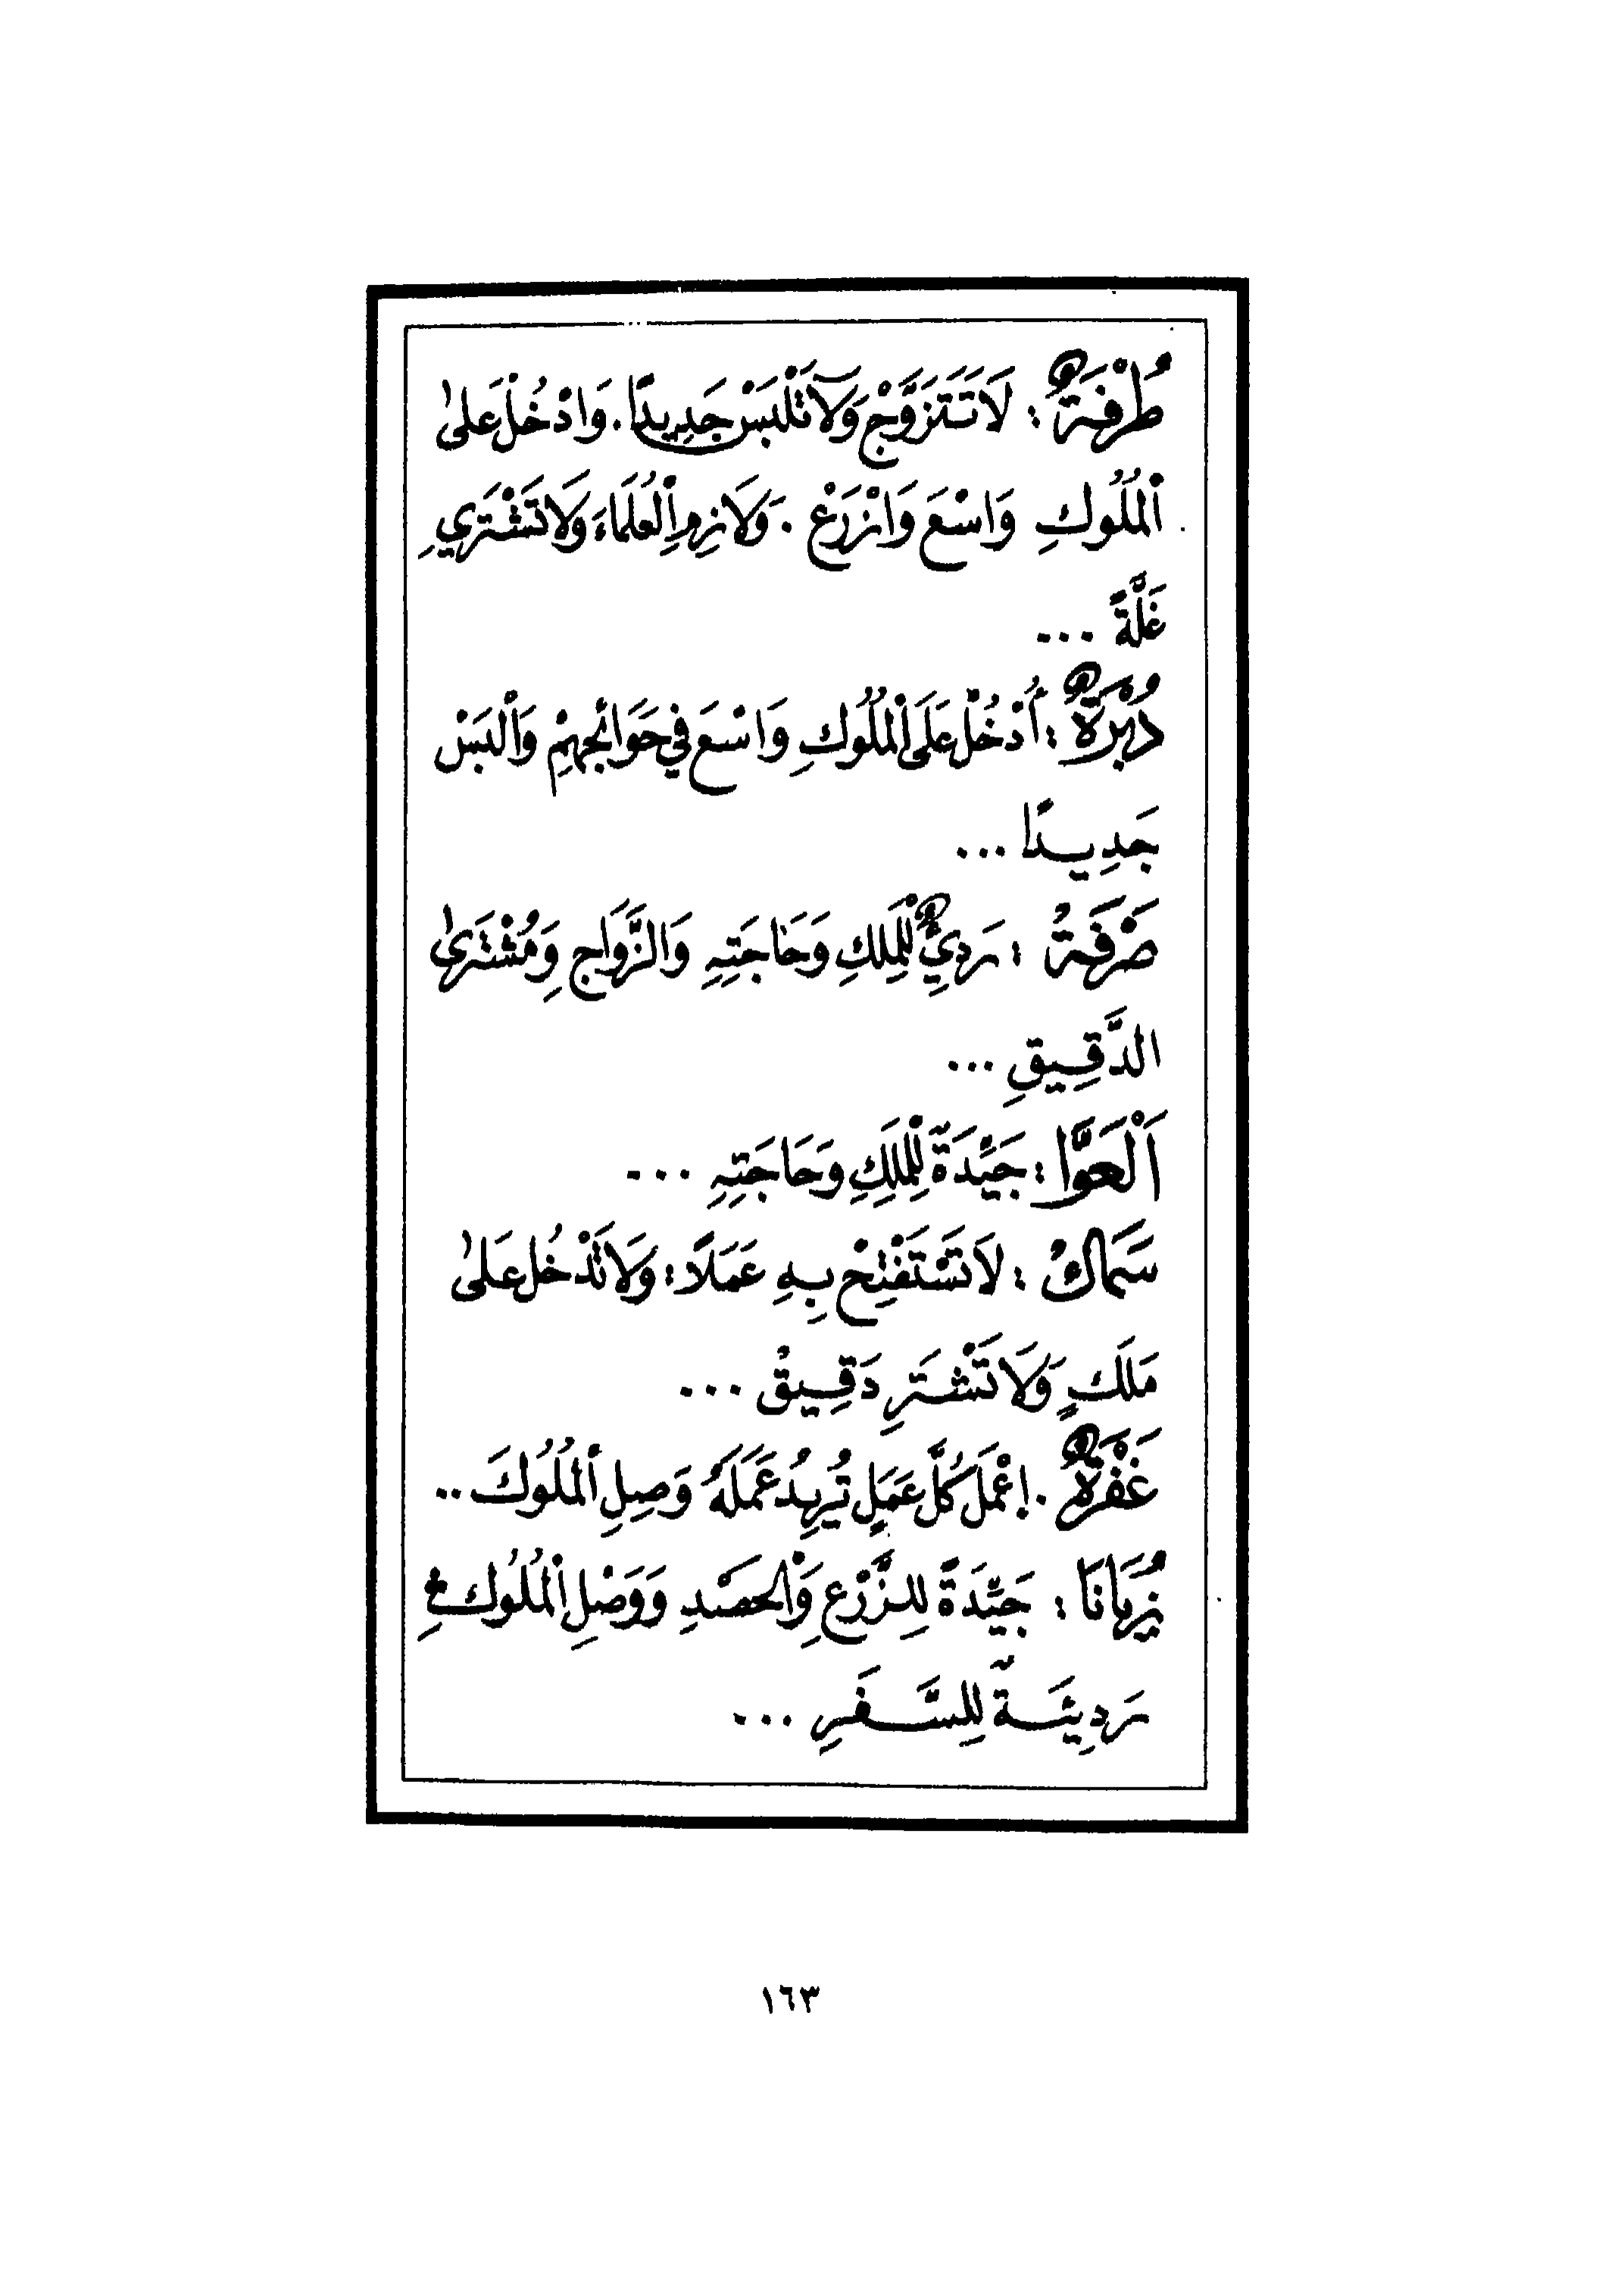 طُرْفَةٌ : لَا تَتَزَوَّجْ وَلَا تَلْبَسْ جَدِيدًا . وَادْخُلْ عَلىٰ
اَلْمُلُوكِ وَاسْعَ وَازْرَعْ . وَلَازِمِ اِلْعُلَمَاءَ وَلَا تَشْتَرِي
غَلَّةً ...
دُبْرَةٌ : أُدْخُلْ عَلَى اَلْمُلُوكِ وَاسْعَ فِي حَوَائِجِهِمْ وَاَلْبَسْ
جَدِيدًا ...
صَرْفَةُ : رَدِيٌ لِلْمَلِكِ وَحَاجَتِهِ وَالزَّوَاجِ وَمُشْتَرىٰ
الدَّقِيقِ ...
اَلْعَوَّا : جَيِّدَةٌ لِلْمَلِكِ وَحَاجَتِهِ ...
سَمَاكُ : لَا تَسْتَفْتِحْ بِهِ عَمَلًا : وَلَا تَدْخُل عَلىٰ
مَلَكٍ وَلَا تَشْتَرِ دَقِيقْ ...
غَفْرَةٌ . اِعْمَلَ كُلَّ عَمَلٍ تُرِيدُ عَمَلَهُ وَصِلِ اَلْمُلُوكَ ..
زُبَانَا : جَيِّدَةٌ لِلزَّرْعِ وَالْحَصْدِ وَوَصْلِ اَلْمُلُوكِ
رَدِيئَةٌ لِلسَّفَرِ ...
١٦٣